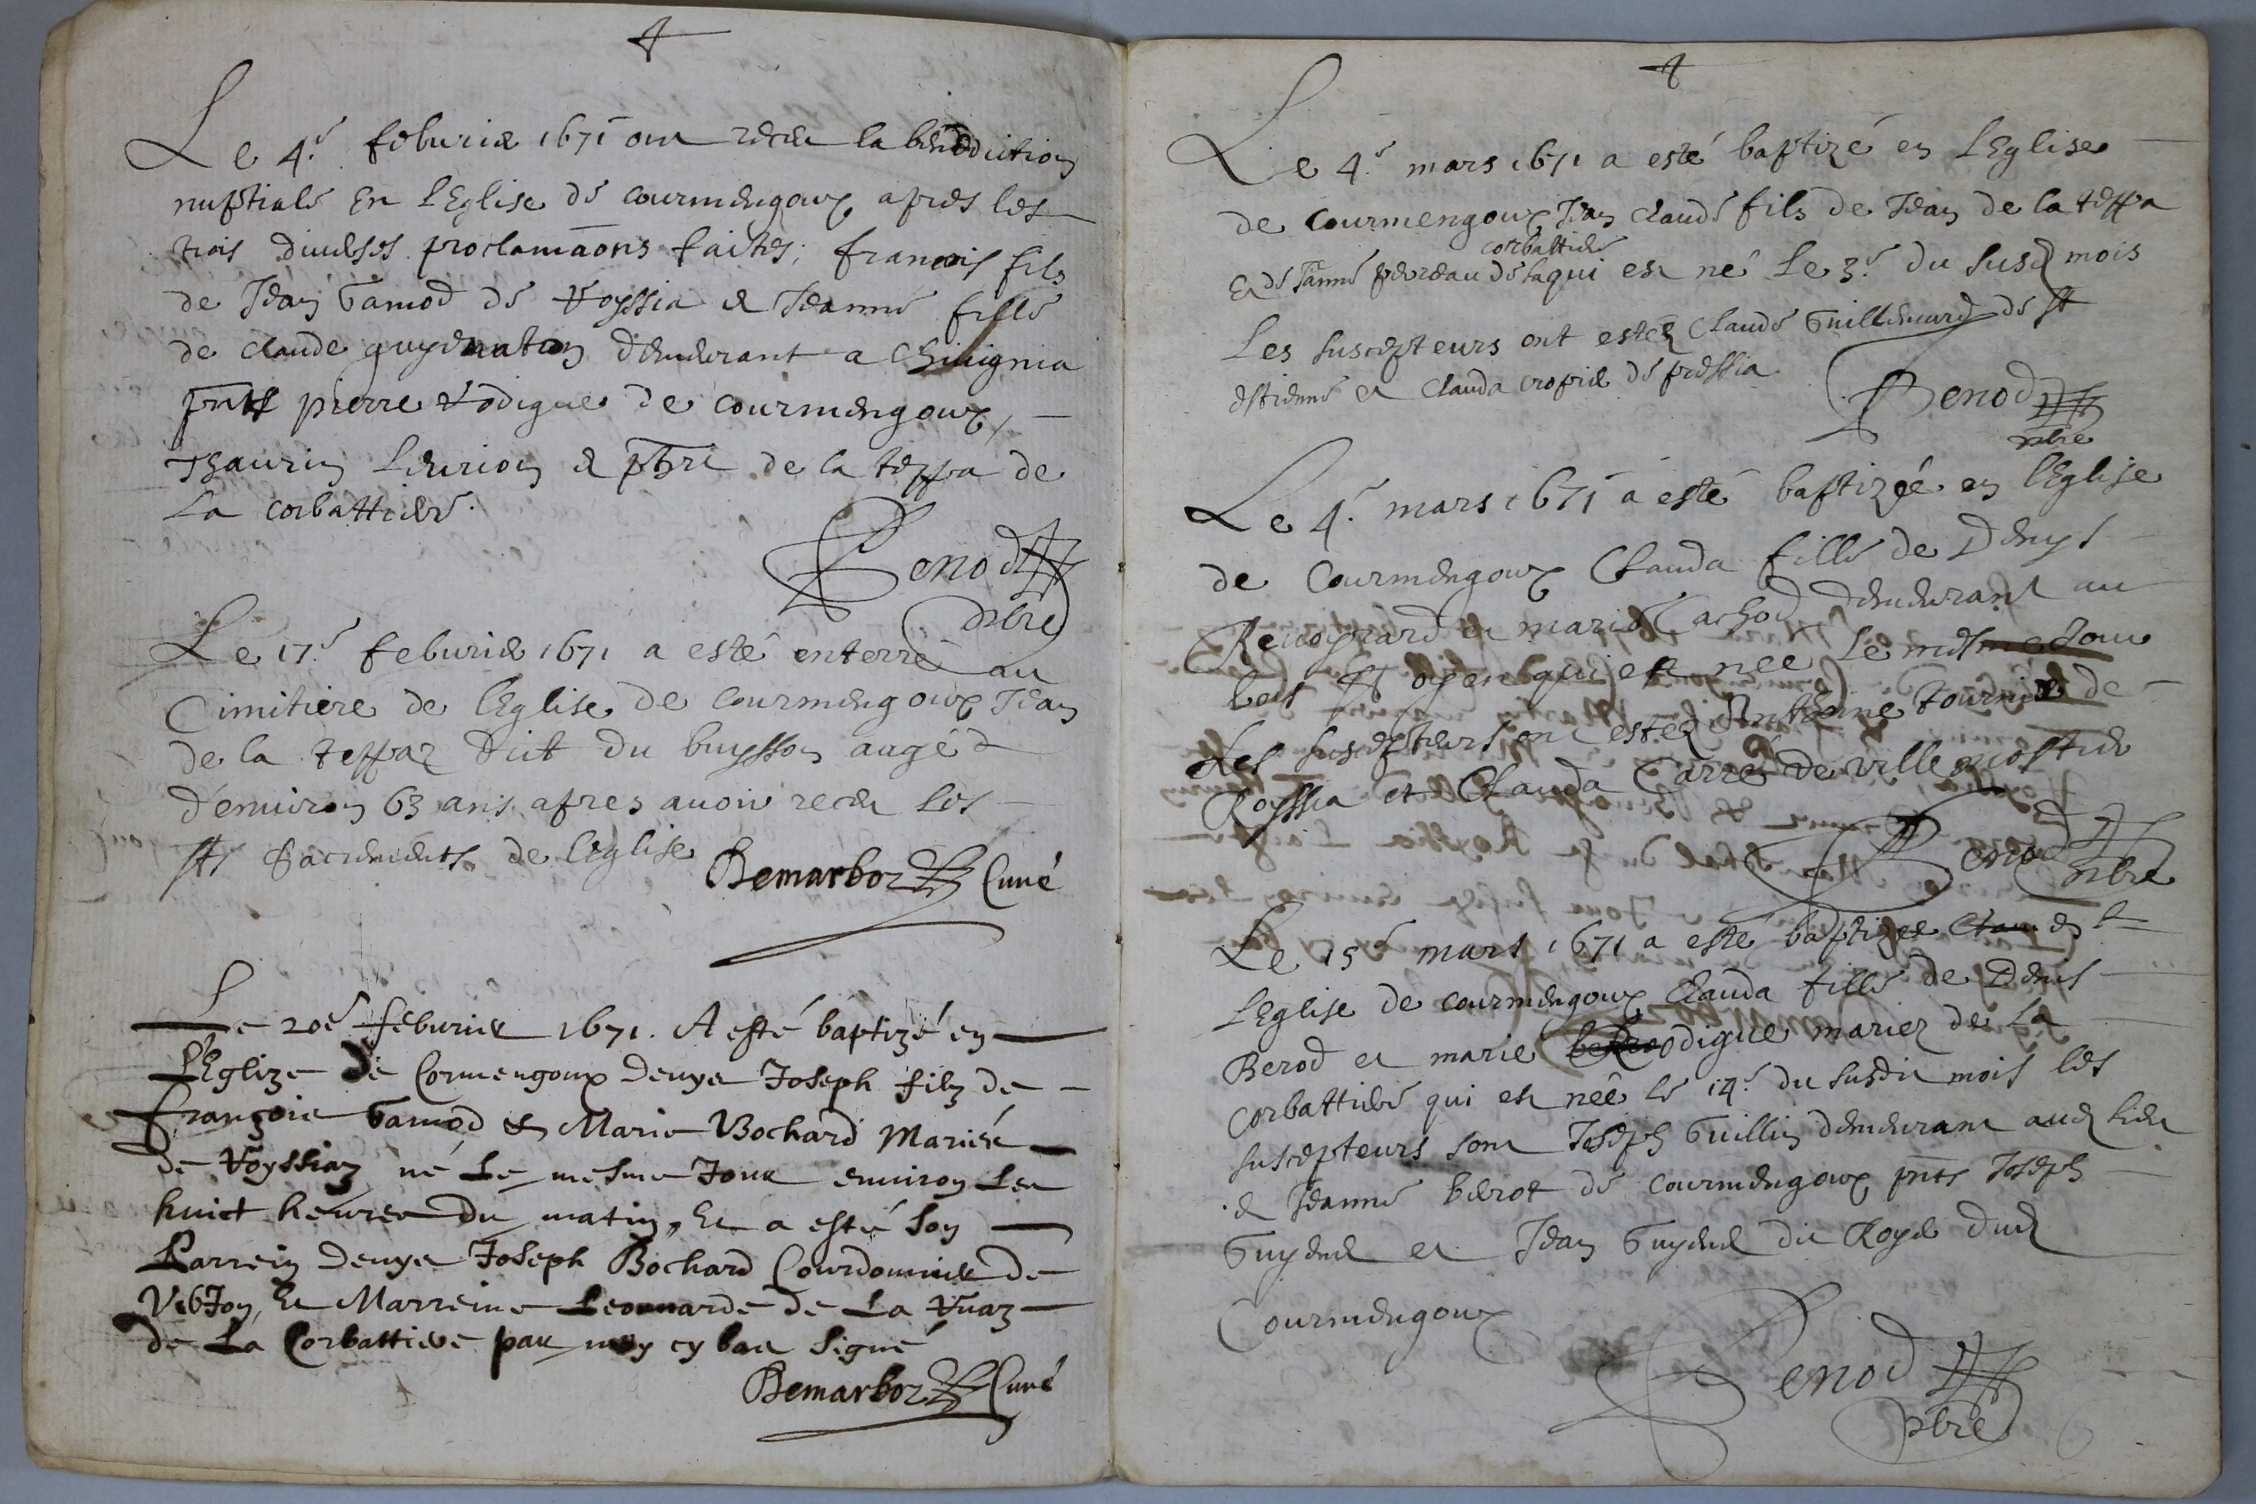 Le 4.e feburier 1671 ont receu la benediction
nuptiale En LEglise de courmengoux apres les
trois diuerses proclamaons faites, francois fils
de Jean Gamod de Voyssia et Jeanne fille
de claude guyenaton demeurant a Chiuignia
pnts pierre Vodigue de courmengoux,
Thaurin Leurion et pbre de la teppa de
La corbattiere.
Benod
pbre
Le 17.e feburier 1671 a esté enterré au
Cimitiere de lEglise de courmengoux Jean
de la teppaz dict du buysson augé
d'enuiron 63 ans apres auoir receu les
sts Sacrements de lEglise
Bemarboz Curé
Le 20e feburier 1671. A esté baptizé en
LEglize de Cormengoux Denys Joseph filz de
françois Gamod et Marie Bochard Mariés
de Voyssiaz né Le mesme Jour enuiron Les
huict heures du matin, Et a esté son
Parrein Denys Joseph Bochard Courdonnier de
Et Marreine Leonnarde de La
de La Corbattiere par moy cy bas signé
Bemarboz Curé
Le 4.e mars 1671 a esté baptizé en LEglise
de Courmengoux Jean claude fils de Jean de la teppa
corbattiere
Et de Janne perreau de la qui est né Le 3.e du susd mois
Les suscepteurs ont estez Claude Guillemard de st
estienne et Clauda cropier de pressia
Benod
pbre
Le 4.e mars 1671 a esté baptizée en lEglise
de Courmengoux Clauda fille de Denys
et marie Cachod demeurant au
qui est née Le mesme Jour
Les suscepteurs ont estez Anthoine tournier de
Royssia et Clauda Carrez de Villemostier
Benod
pbre
Le 15.e mars 1671 a esté baptizee en
LEglise de courmengoux Clauda fille de Denis
Berod et marie Vodigue mariez de La
Corbattiere qui est née le 14.e du susdit mois les
suscepteurs sont Joseph Guillin demeurant aud lieu
et Jeanne berot de courmengoux pnts Joseph
Guyenet et Jean Guyenet dit Royer dud
Courmengoux
Benod
pbre